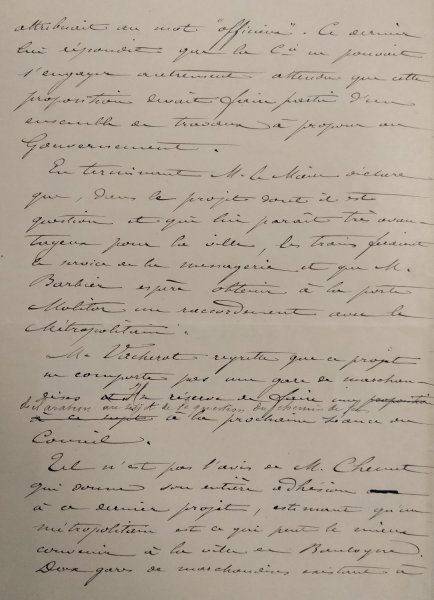 attribuait au mot "officieux". Ce dernier
lui répondit que la Cie ne pouvait
s'engager autrement attendu que cette
proposition devait faire partie d'un
ensemble de travaux à proposer au
Gouvernement.
En terminant M. le Maire déclare
que, dans le projet dont il est
question et qui lui paraît très avan-
tageux pour la ville, les trains feraient
le service de la messagerie et que M.
Barbier espère obtenir à la porte
Molitor un raccordement avec le
Métropolitain.
M. Vacherot regrette que ce projet
ne comporte pas une gare de marchan-
dises et se réserve de faire une proposition
déclaration au sujet de la question du chemin de fer
à ce sujet à la prochaine séance du
Conseil.
Tel n'est pas l'avis de M. Chenet
qui donne son entière adhésion
à ce dernier projet, estimant qu'un
métropolitain est ce qui peut le mieux
convenir à la ville de Boulogne.
Deux gares de marchandises existant à